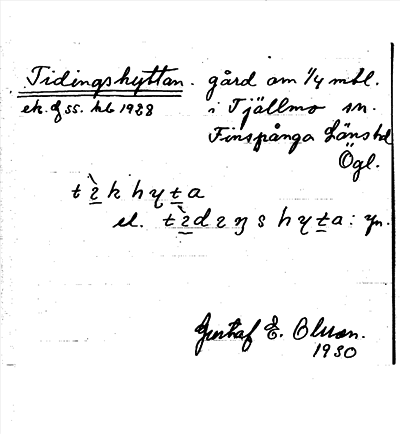 Tidingshyttan. gård om 1/4 mtl.
ek. i Tjällmo sn.
Finspånga Länshd
Ögl.
hyta
el. hyta: yn.
Gustaf E. Olsson.
1930